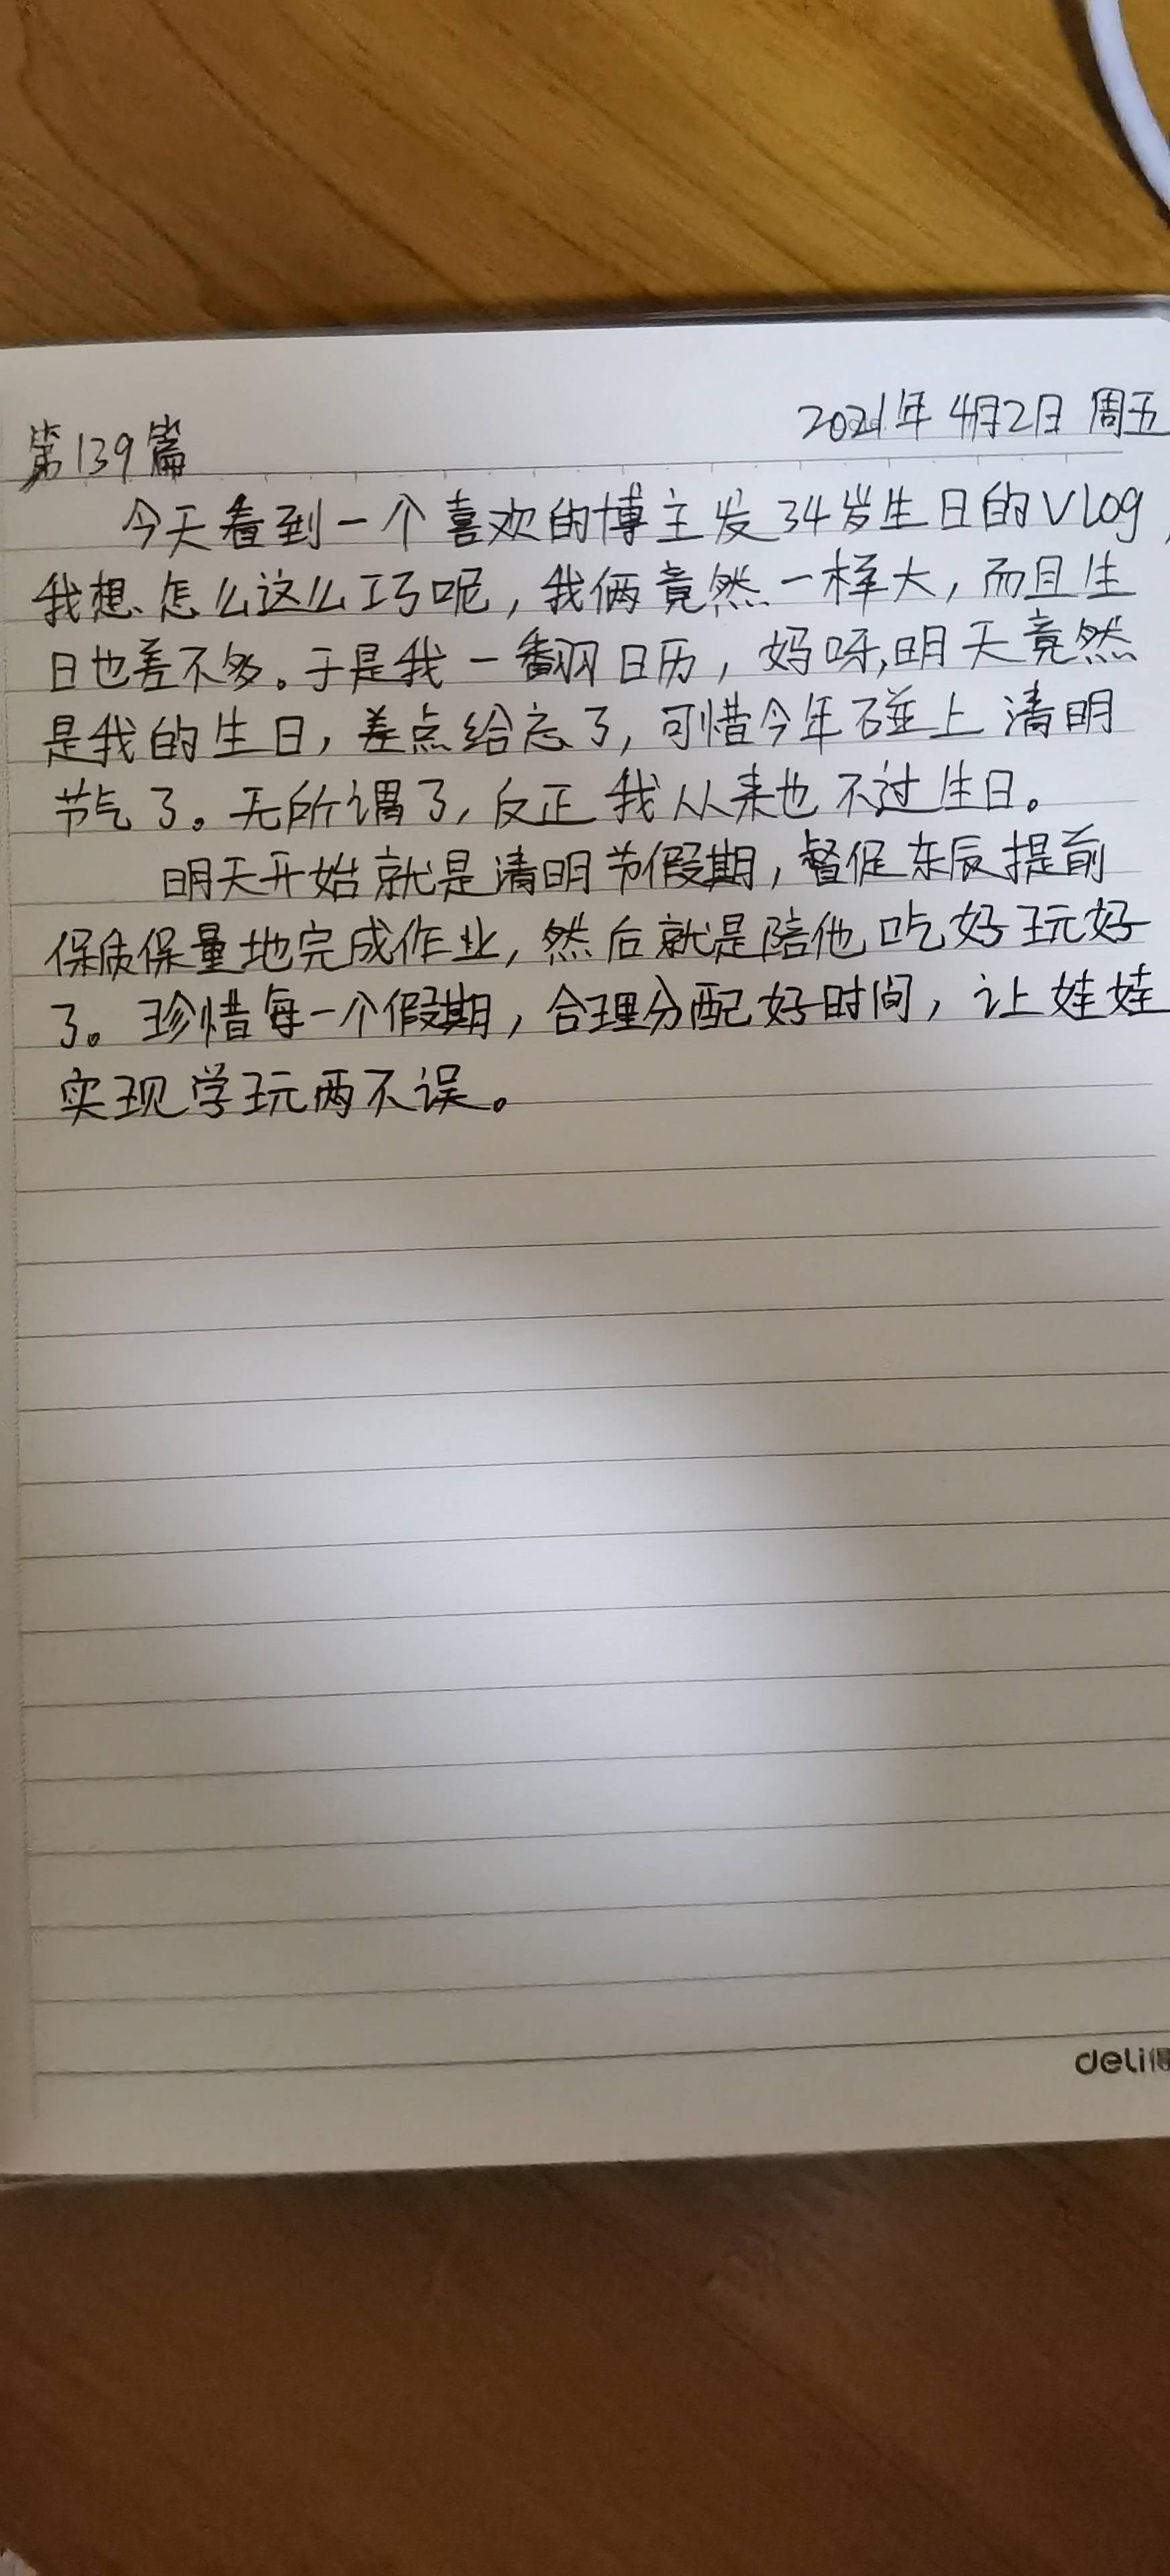 第139篇
2021年4月2日 周五
今天看到一个喜欢的博主发34岁生日的Vlog,
我想怎么这么巧呢,我俩竟然一样大,而且生
日也差不多。于是我一翻日历,妈呀,明天竟然
是我的生日,差点给忘了,可惜今年碰上清明
节气了。无所谓了,反正我从来也不过生日。
明天开始就是清明节假期,督促东辰提前
保质保量地完成作业,然后就是陪他吃好玩好
了。珍惜每一个假期,合理分配好时间,让娃娃
实现学玩两不误。
deli得